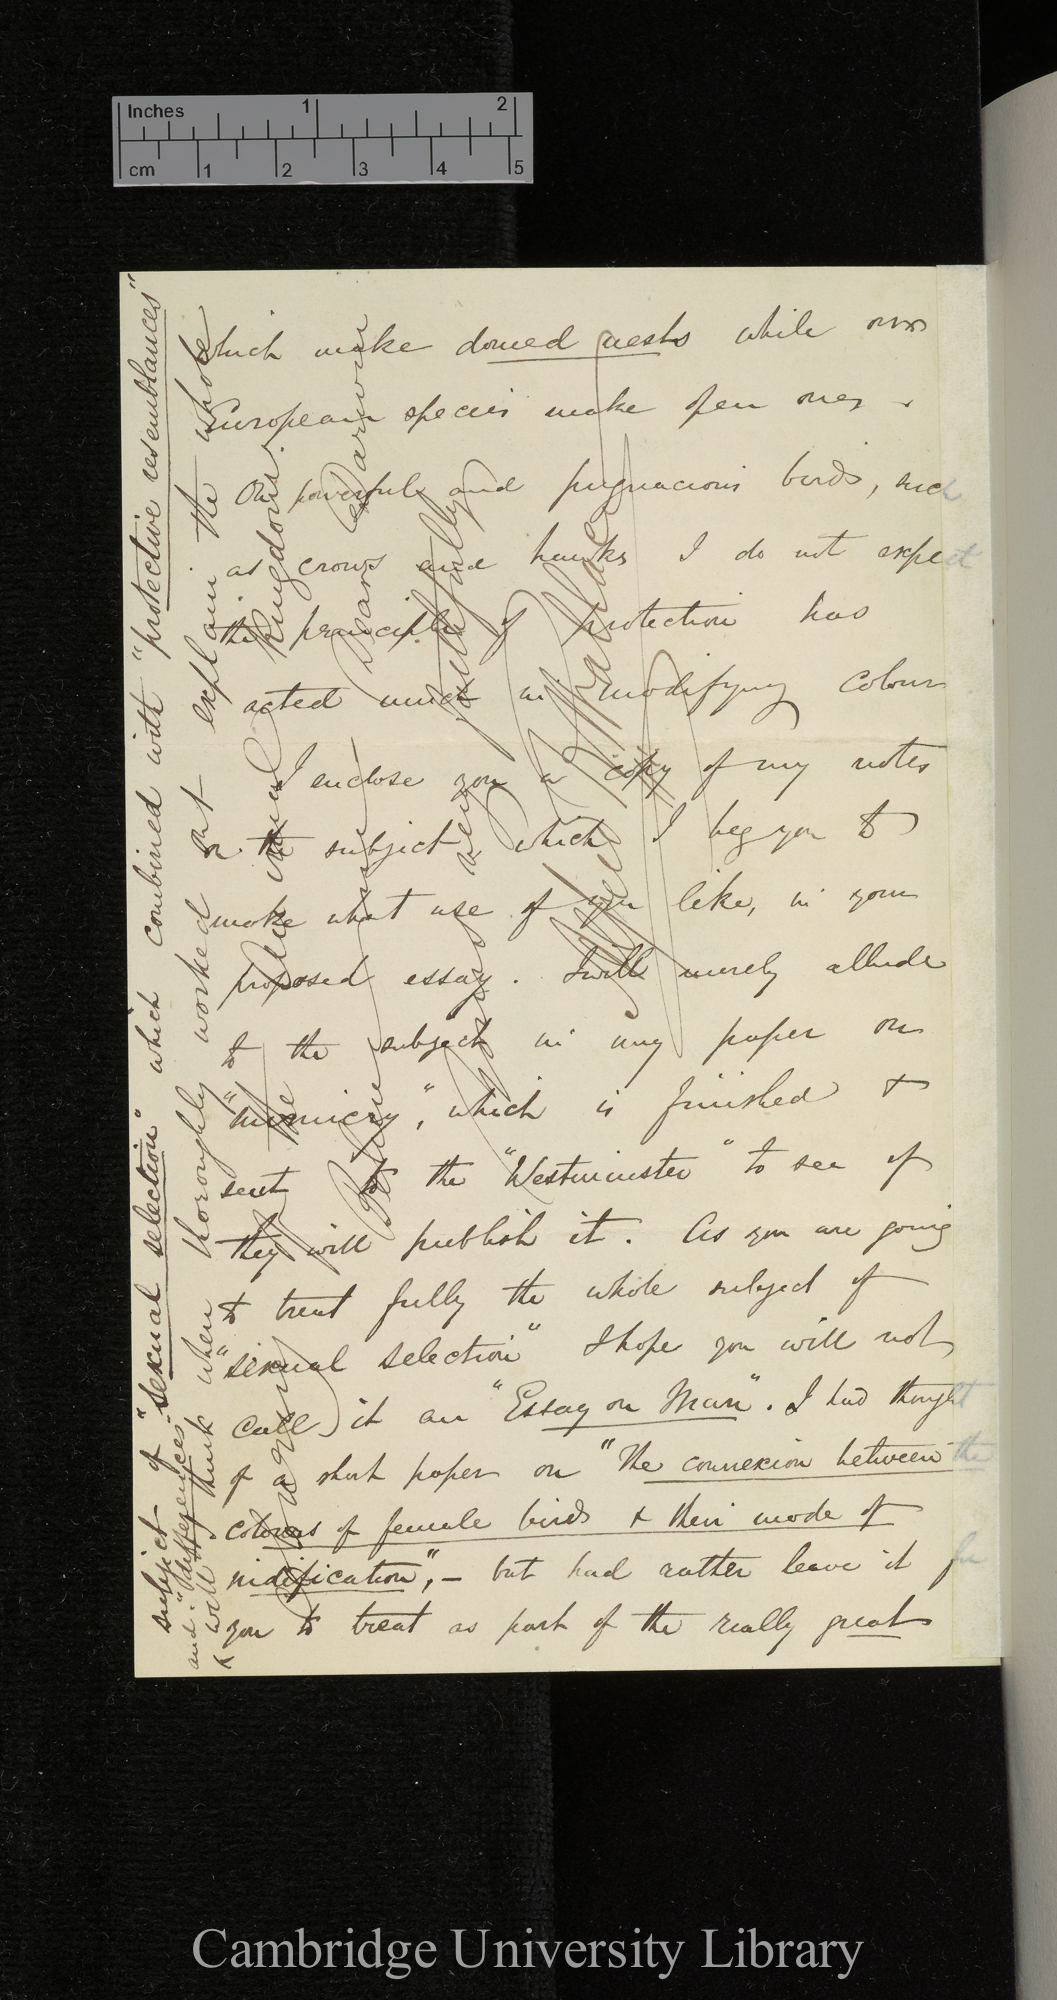 Inches 1 2
cm 1 2 3 4 5
which make domed nests while our
European species make open ones.
On powerful and pugnacious birds, such
as crows and hawks I do not expect
the principle of protection has
acted much in modifying colour
I enclose you a copy of my notes
on the subject which I beg you to
make what use of you like, in your
proposed essay. I will merely allude
to the subject in my paper on
"Mimicry", which is finished &
sent to the "Westminster" to see if
they will publish it. As you are going
to treat fully the whole subject of
"sexual selection" I hope you will not
call it an "Essay on Man". I had thought
of a short paper on "The connexion between the
colours of female birds & their mode of
nidification",— but had rather leave it for
you to treat as part of the really great
subject of "sexual selection" which combined with "protective resemblances"
and "differences"
will I think when thoroughly worked out explain the whole
colouring of the animal Kingdom.
Believe me Dear Darwin
Yours very faithfully
Alfred R. Wallace
Cambridge University Library